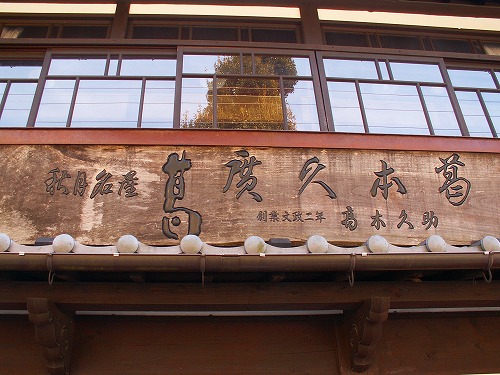 秋月名産 廣久本葛
創業文政二年 高木久助